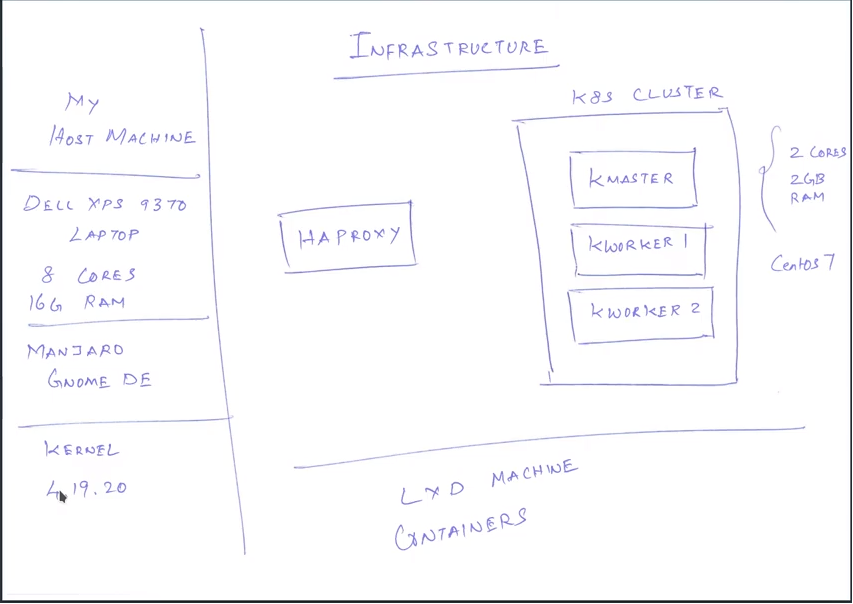 INFRASTRUCTURE
MY
HOST MACHINE
DELL XPS 9370
LAPTOP
8 CORES
16G RAM
MANJARO
GNOME DE
KERNEL
4.19.20
HAPROXY
K8S CLUSTER
KMASTER
KWORKER 1
KWORKER 2
2 CORES
2GB
RAM
CentOS 7
LXD MACHINE
CONTAINERS